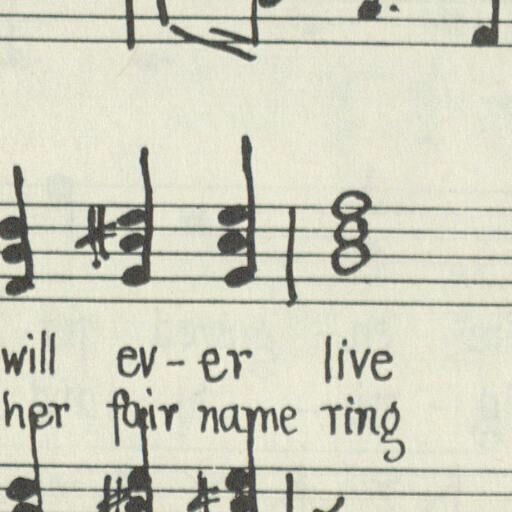 will ev-er live
her fair name ring